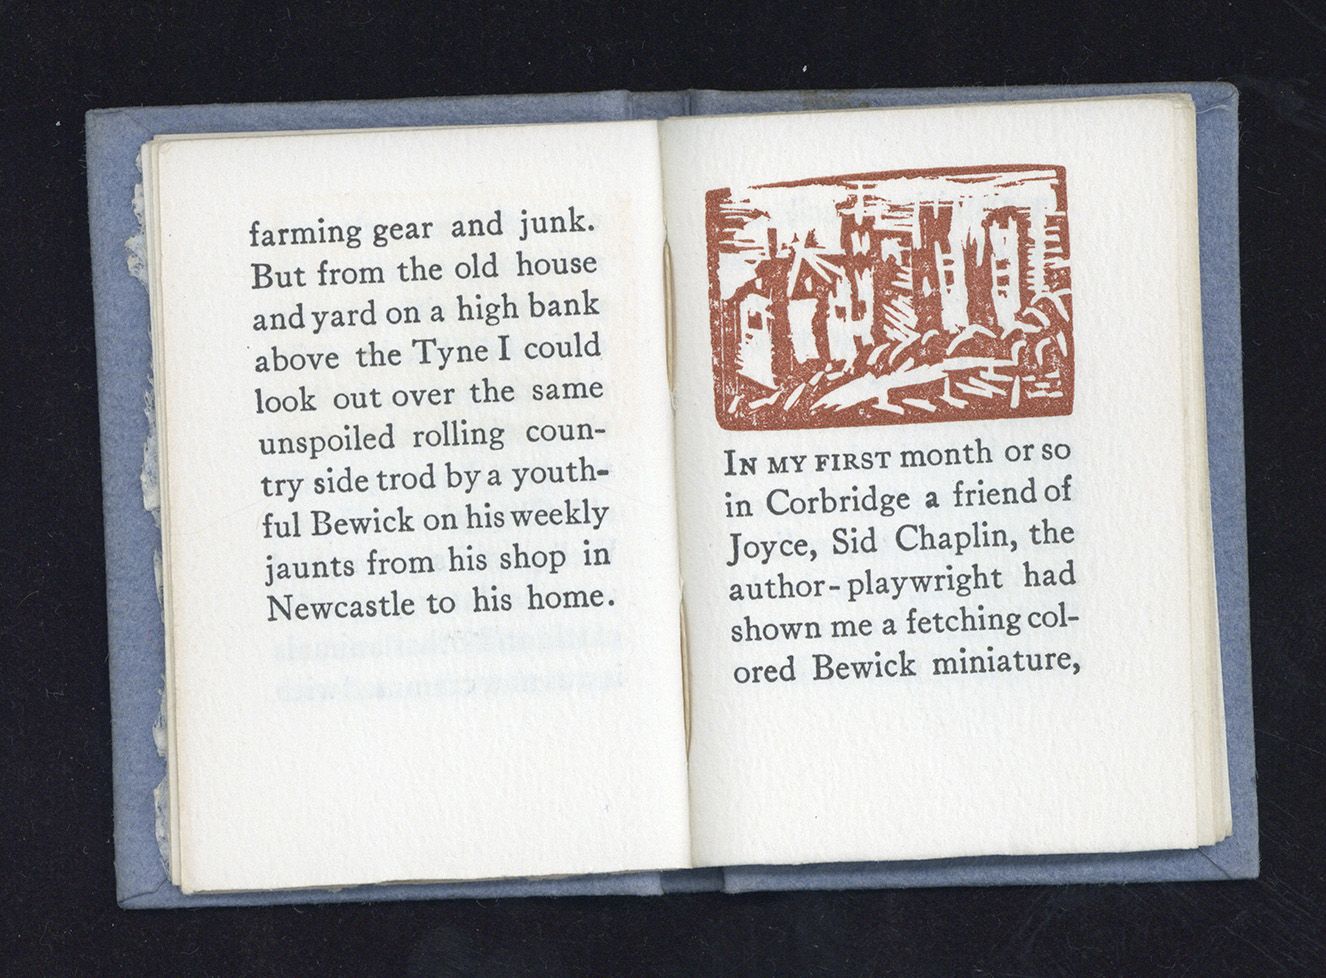 farming gear and junk.
But from the old house
and yard on a high bank
above the Tyne I could
look out over the same
unspoiled rolling coun-
try side trod by a youth-
ful Bewick on his weekly
jaunts from his shop in
Newcastle to his home.
IN MY FIRST month or so
in Corbridge a friend of
Joyce, Sid Chaplin, the
author-playwright had
shown me a fetching col-
ored Bewick miniature,